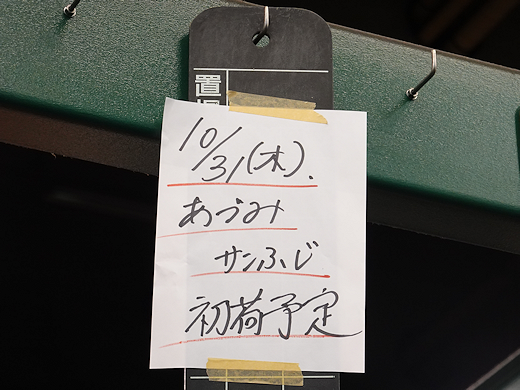 置
10/31(木).
あづみ
サンふじ
初荷予定